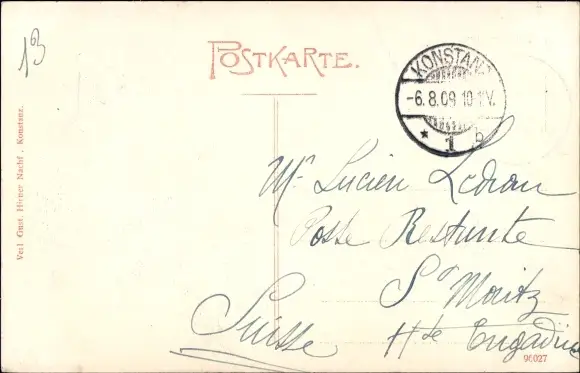 13
POSTKARTE.
KONSTANZ
-6.8.09 10-11V.
* 1 b
Mr Lucien Ledran
Poste Restante
St Moritz
Suisse Hte Engadine
Verl Gust. Hiener Nachf., Konstanz.
96027